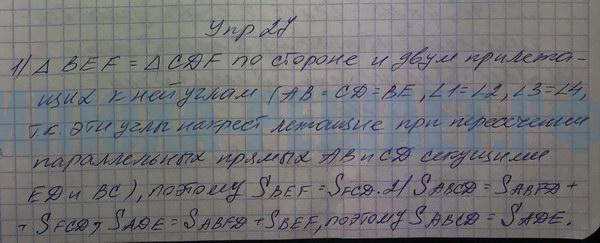 Упр 27
1) △ BEF = △ CDF по стороне и двум прилежа-
щих к ней углам (AB = CD = BE, ∠1=∠2, ∠3=∠4,
т.к. эти углы накрест лежащие при пересечении
параллельных прямых AB и CD секущими
ED и BC), поэтому S_BEF = S_FCD. 2) S_ABCD = S_ABFD +
+ S_FCD, S_ADE = S_ABFD + S_BEF, поэтому S_ABCD = S_ADE.